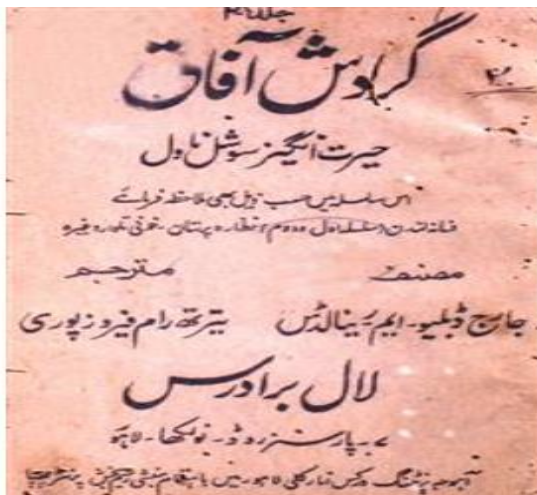 جلد ۴
گردش آفاق
حیرت انگیز سوشل ناول
اس سلسلہ میں حسب ذیل بھی ملاحظہ فرمائے
فسانہ لندن (سلسلہ اول و دوم) نظارہ پرستان - خونی تلوار وغیرہ
مصنف مترجم
جارج ڈبلیو - ایم رینالڈس تیرتھ رام فیروزپوری
لال برادرس
۷ - پارسنز روڈ - نولکھا - لاہور
پرنٹنگ ورکس انارکلی لاہور میں باہتمام منشی